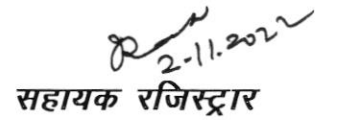 2-11.2022
सहायक रजिस्ट्रार